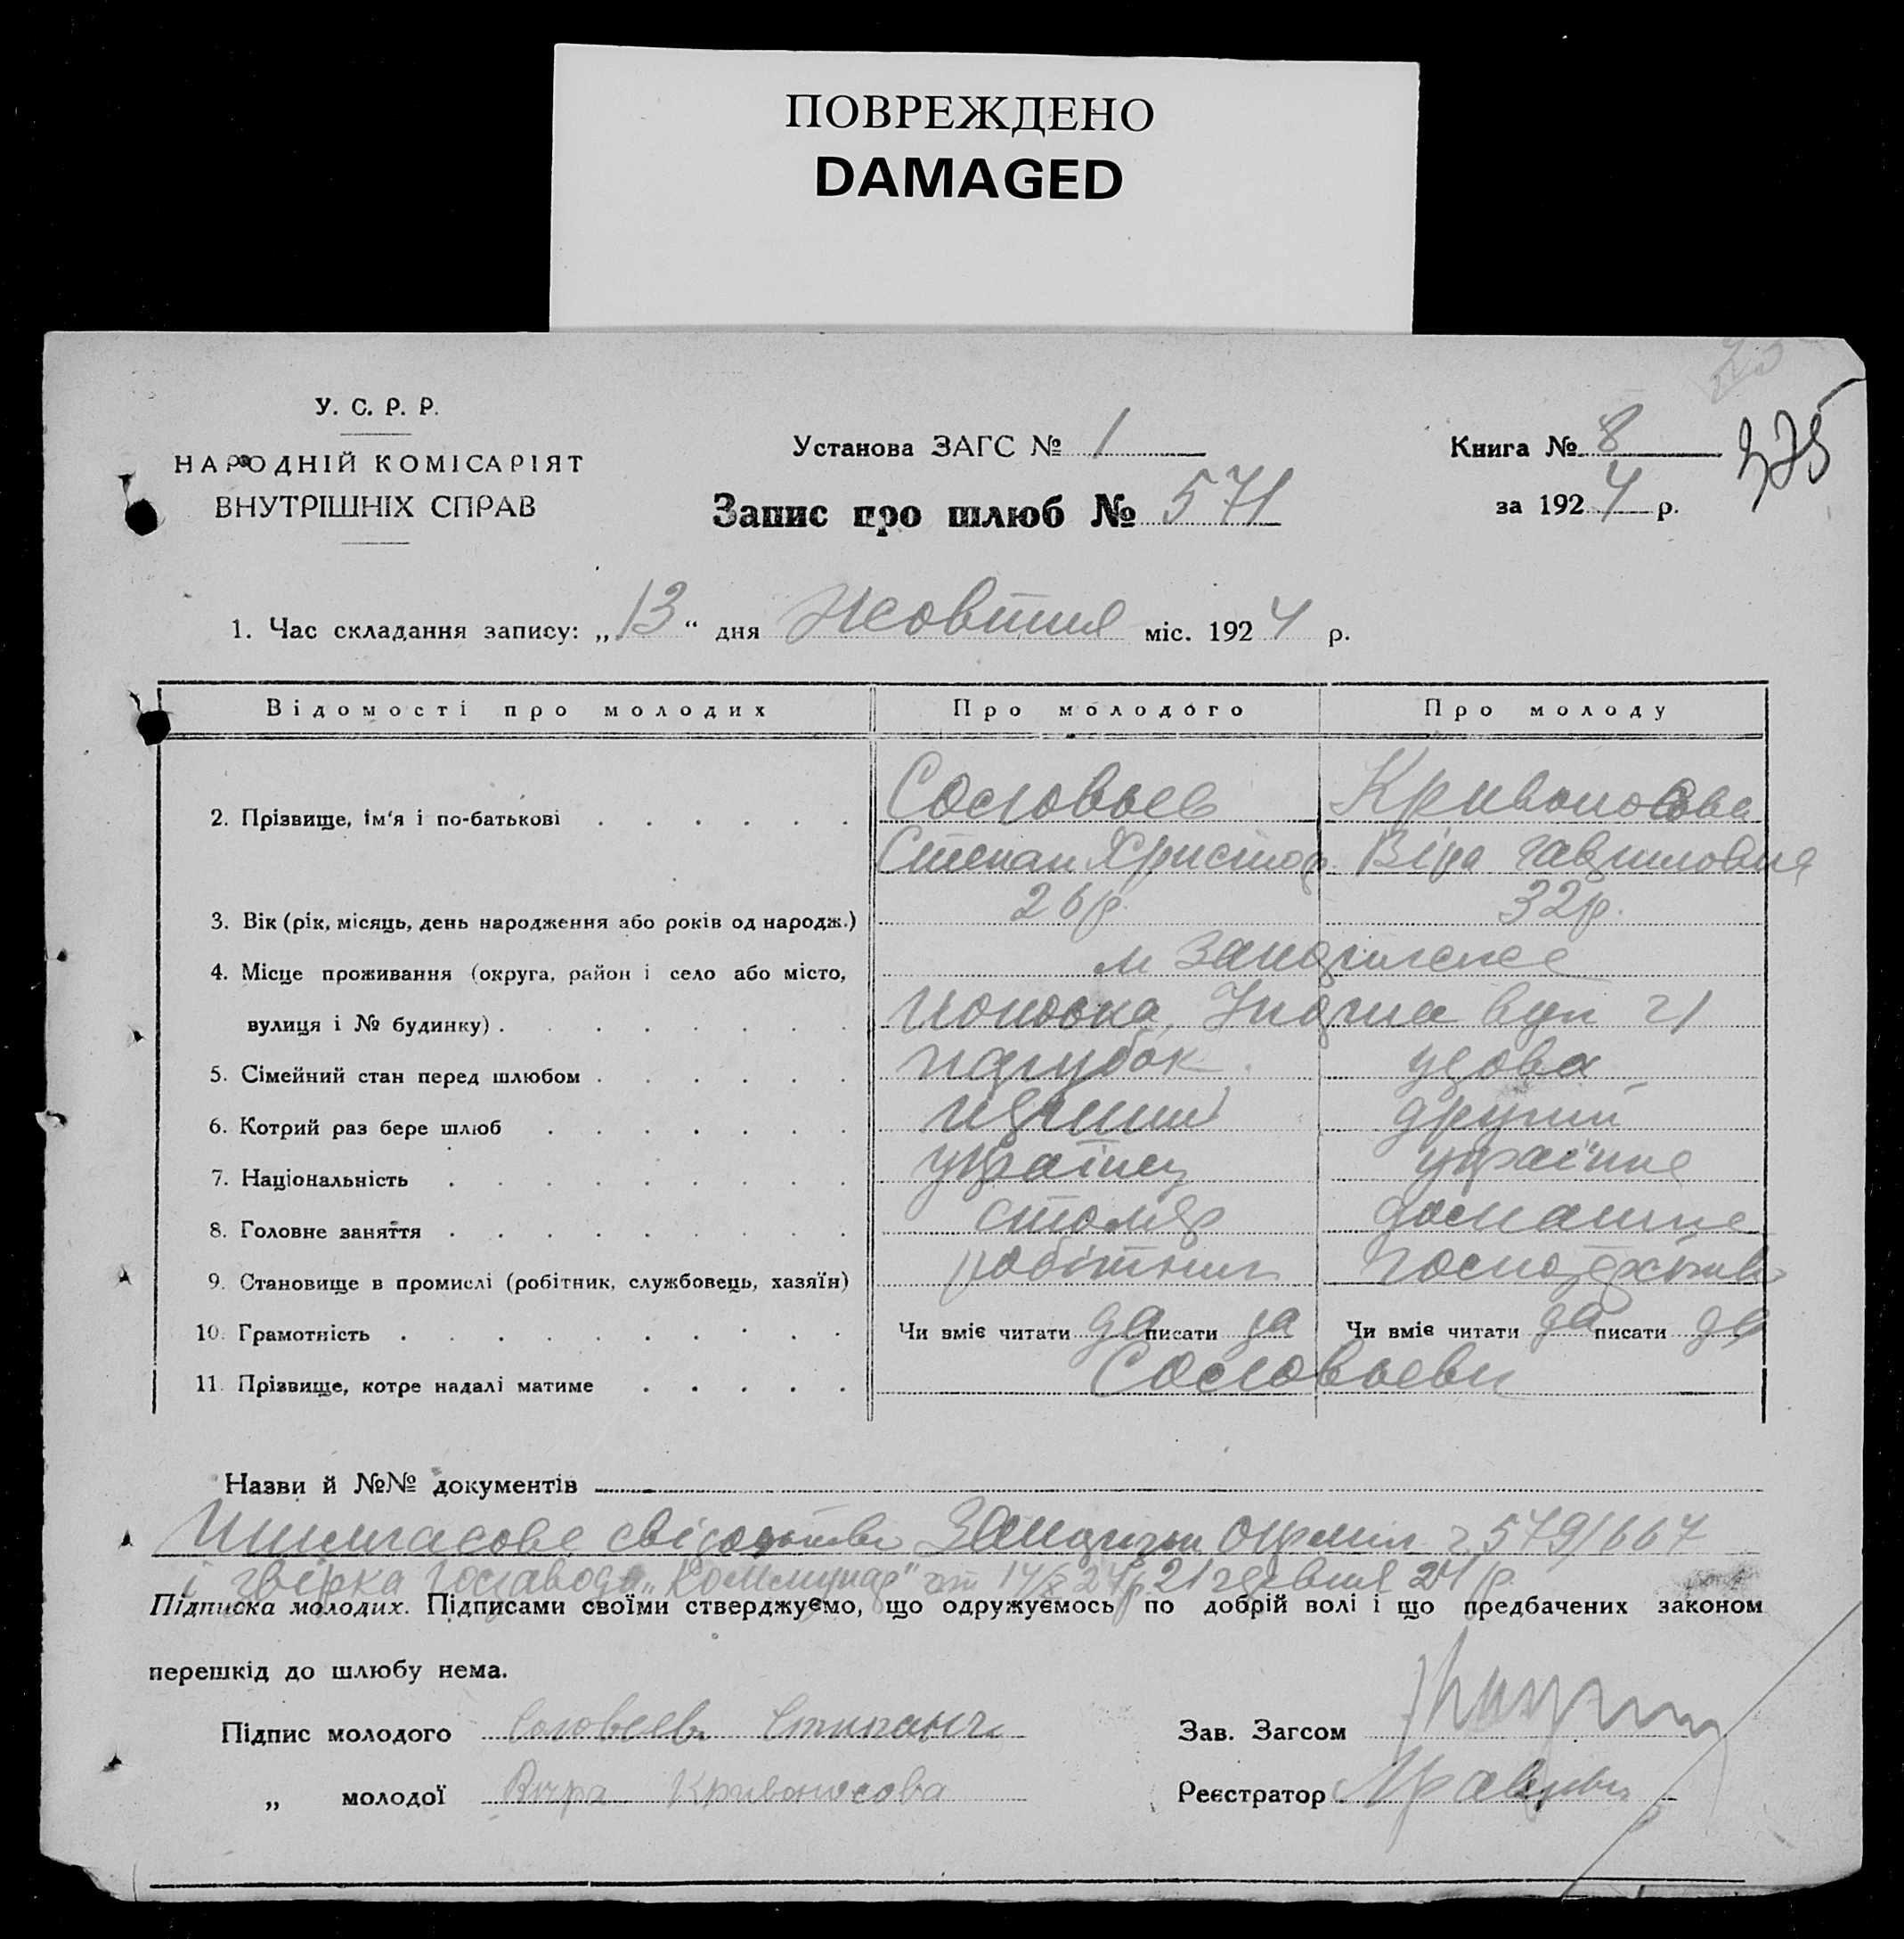 ПОВРЕЖДЕНО
DAMAGED
У. С. Р. Р.
НАРОДНІЙ КОМІСАРІЯТ
ВНУТРІШНІХ СПРАВ
Установа ЗАГС № 1
Запис про шлюб № 571
Книга № 8
за 1924 р.
375
1. Час складання запису: „13“ дня Жовтня міс. 1924 р.
Відомості про молодих Про молодого Про молоду
2. Прізвище, ім'я і по-батькові Соловьев Кривоносова
Степан Христоф. Віра Гавриловна
3. Вік (рік, місяць, день народження або років од народж.) 26 р. 32 р.
4. Місце проживання (округа, район і село або місто, м Запоріжжє
вулиця і № будинку) вул 21
5. Сімейний стан перед шлюбом парубок удова
6. Котрий раз бере шлюб перший другий
7. Національність українец українка
8. Головне заняття столяр домашнє
9. Становище в промислі (робітник, службовець, хазяїн) робітник господарство
10. Грамотність Чи вміє читати да писати да Чи вміє читати да писати да
11. Прізвище, котре надалі матиме Соловьеви
Назви й №№ документів
свідоцтво 579/667
і Госзавода „Коммунар" от 14/X 24 р. 21 червня 24 р.
Підписка молодих. Підписами своїми стверджуємо, що одружуємось по добрій волі і що предбачених законом
перешкід до шлюбу нема.
Підпис молодого Соловьев
Зав. Загсом
„ молодої Вѣра Кривоносова
Реєстратор